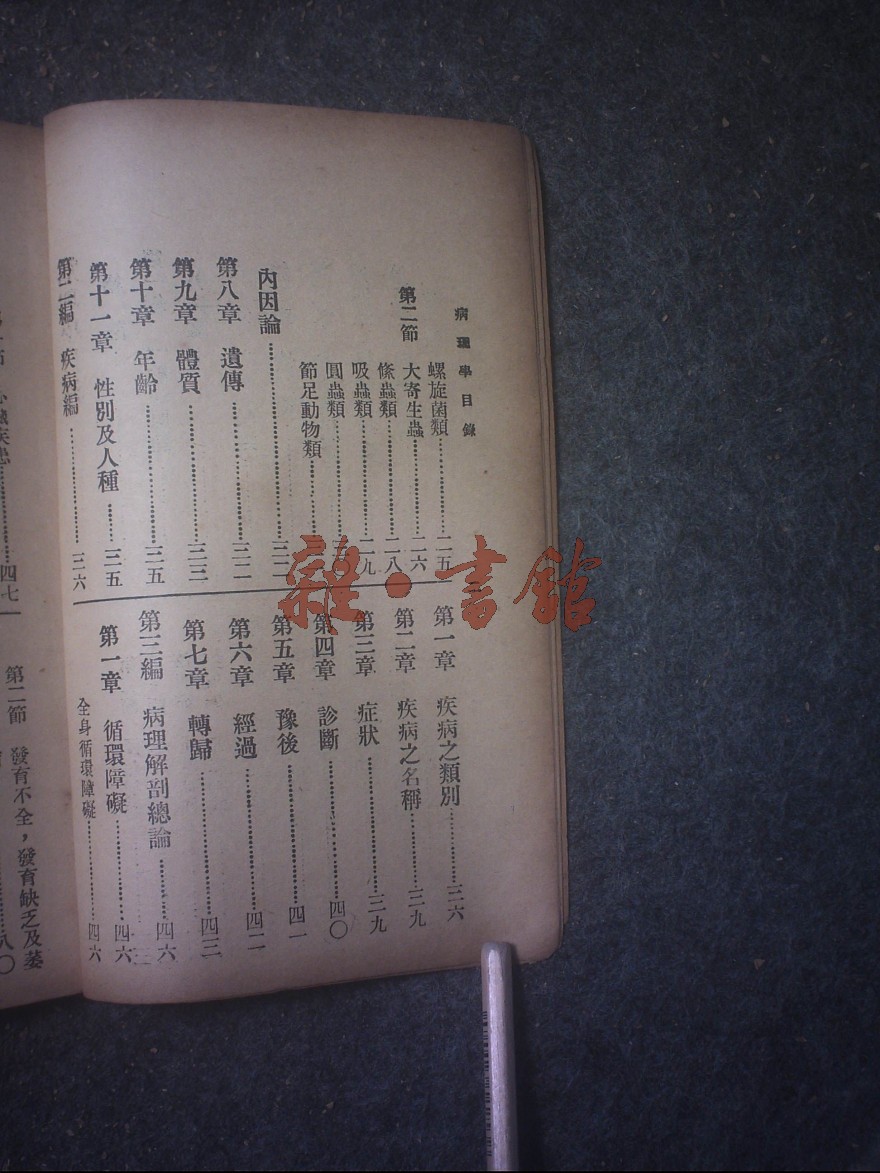 病理學目錄
螺旋菌類……二五
第二節 大寄生蟲……二六
絛蟲類……二八
吸蟲類……二九
圓蟲類……
節足動物類……
內因論……三二
第八章 遺傳……三二
第九章 體質……三三
第十章 年齡……三五
第十一章 性別及人種……三五
第二編 疾病編……三六
第一章 疾病之類別……三六
第二章 疾病之名稱……三九
第三章 症狀……三九
第四章 診斷……四〇
第五章 豫後……四一
第六章 經過……四二
第七章 轉歸……四三
第三編 病理解剖總論……四六
第一章 循環障礙……四六
全身循環障礙……四六
疾患……四七
第二節 發育不全，發育缺乏及萎
八〇
雜·書館